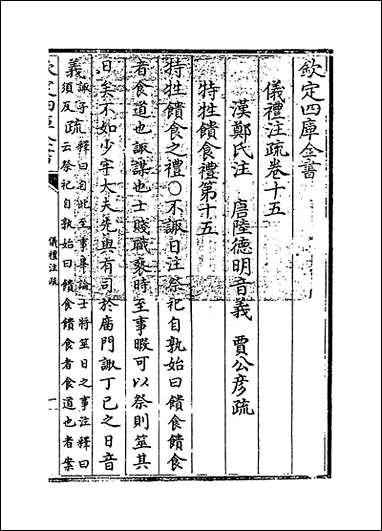 欽定四庫全書
儀禮注疏卷十五
漢鄭氏注　唐陸德明音義　賈公彥疏
特牲饋食禮第十五
特牲饋食之禮○不諏日注祭祀自孰始曰饋食饋食
者食道也諏謀也士賤職褻時至事暇可以祭則筮其
日矣不如少牢大夫先與有司於廟門諏丁己之日音
義諏子須反疏釋曰自此至事畢論士將筮日之事注釋曰
云祭祀自孰始曰饋食饋食者食道也者案
欽定四庫全書
儀禮注疏
一